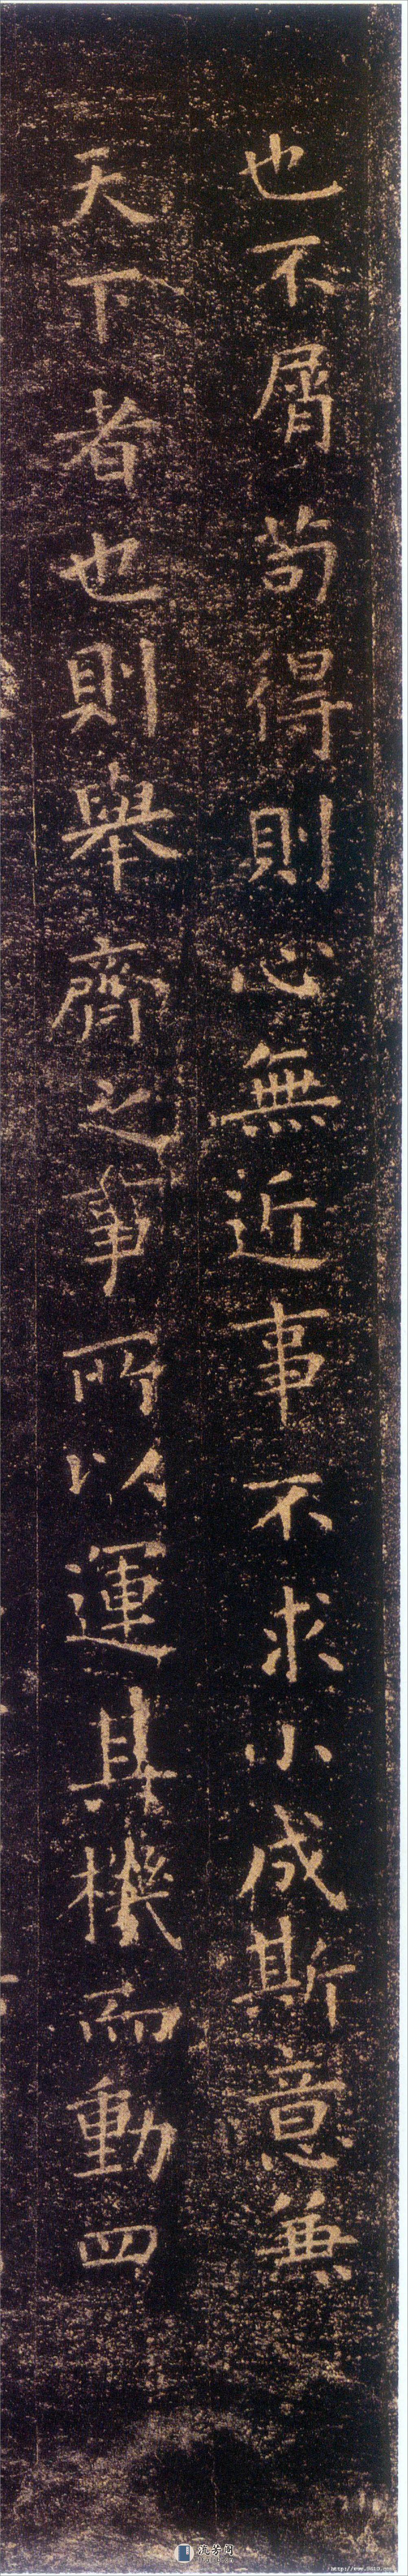 也不屑苟得則心無近事不求小成斯意兼
天下者也則舉齊之事所以運其機而動四